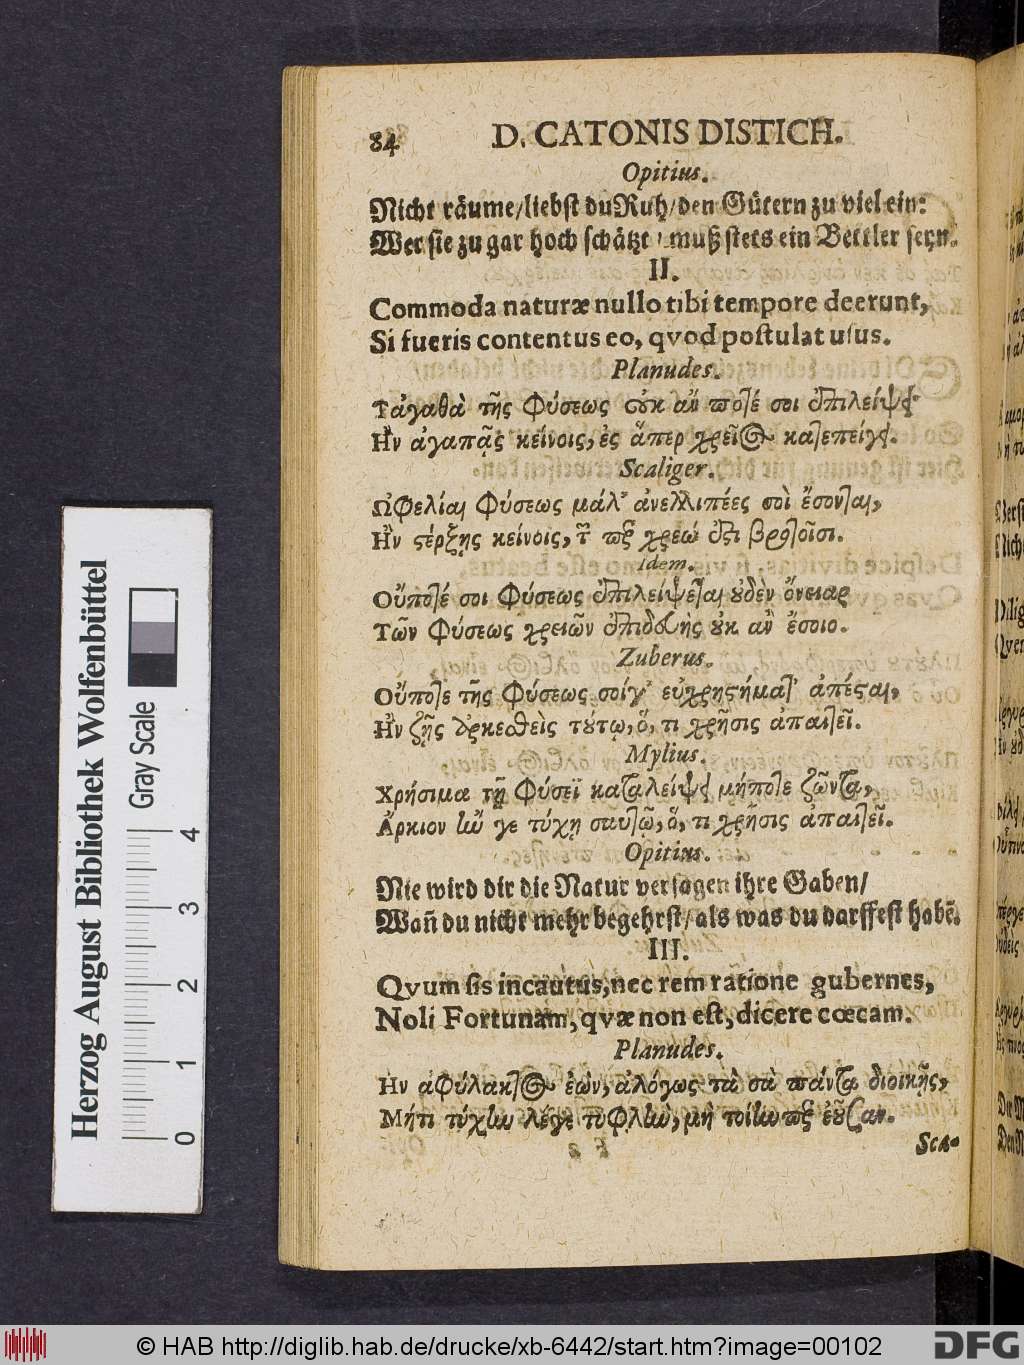 84 D. CATONIS DISTICH.
Opitius.
Nicht räume/liebst du Ruh/den Gütern zu viel ein:
Wer sie zu gar hoch schätzt / muß stets ein Bettler seyn.
II.
Commoda naturæ nullo tibi tempore deerunt,
Si fueris contentus eo, qvod postulat usus.
Planudes.
Τἀγαθὰ τῆς Φύσεως οὐκ ἄν ποτέ σοι ἐπιλείψει·
Ἢν ἀγαπᾷς κείνοις, ἐς ἅπερ χρεῖος κατεπείγει.
Scaliger.
Ὠφελίαι Φύσεως μάλ' ἀνελλιπέες σοὶ ἔσονται,
Ἢν στέρξῃς κείνοις, τῶν περ χρεώ ἐστι βροτοῖσι.
Idem.
Οὔποτέ σοι Φύσεως ἐπιλείψεται οὐδὲν ὄνειαρ
Τῶν Φύσεως χρειῶν ἐπιδευὴς οὐκ ἂν ἔσοιο.
Zuberus.
Οὔποτε τῆς Φύσεως σοίγ' εὐχρηστήματ' ἀπέσται,
Ἢν ζῇς ἀρκεσθεὶς τούτῳ, ὅ, τι χρῆσις ἀπαιτεῖ.
Mylius.
Χρήσιμα τῇ Φύσεϊ καταλείψει μήποτε ζῶντα,
Ἄρκιον ἢν γε τύχῃ σαυτῷ, ὅ, τι χρῆσις ἀπαιτεῖ.
Opitius.
Nie wird dir die Natur versagen ihre Gaben/
Wañ du nicht mehr begehrst/als was du darffest habẽ.
III.
Qvum sis incautus, nec rem ratione gubernes,
Noli Fortunam, qvæ non est, dicere cœcam.
Planudes.
Ἢν ἀφύλακτος ἐὼν, ἀλόγως τὰ σὰ πάντα διοικῇς,
Μήτι τύχην λέγε τυφλὴν, μὴ τοίην περ ἐοῦσαν.
Sca-
Herzog August Bibliothek Wolfenbüttel
Gray Scale
0 1 2 3 4
© HAB http://diglib.hab.de/drucke/xb-6442/start.htm?image=00102
DFG